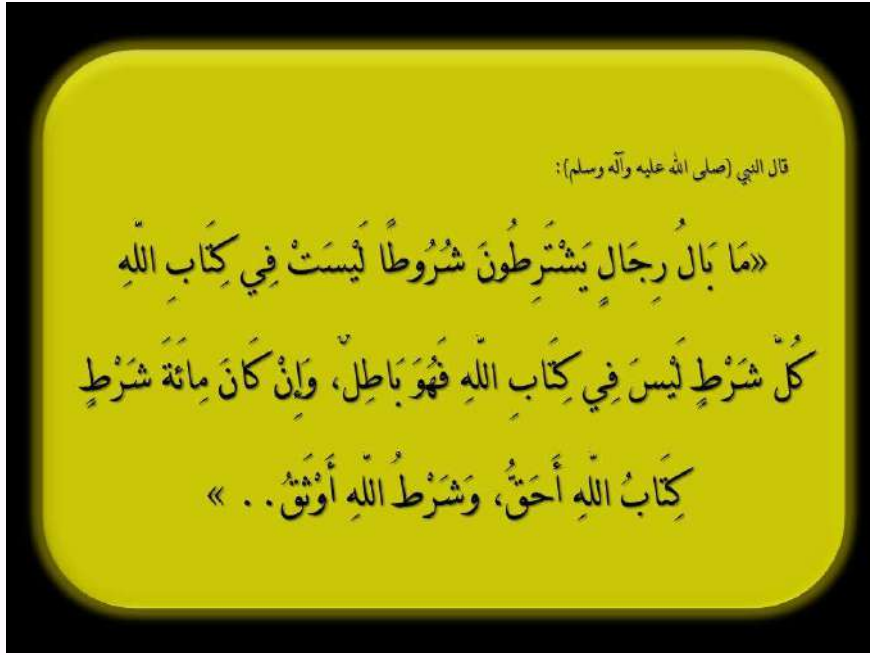 قال النبي (صلى الله عليه وآله وسلم):
«مَا بَالُ رِجَالٍ يَشْتَرِطُونَ شُرُوطًا لَيْسَتْ فِي كِتَابِ اللَّهِ
كُلُّ شَرْطٍ لَيْسَ فِي كِتَابِ اللَّهِ فَهُوَ بَاطِلٌ، وَإِنْ كَانَ مِائَةَ شَرْطٍ
كِتَابُ اللَّهِ أَحَقُّ، وَشَرْطُ اللَّهِ أَوْثَقُ. . . »